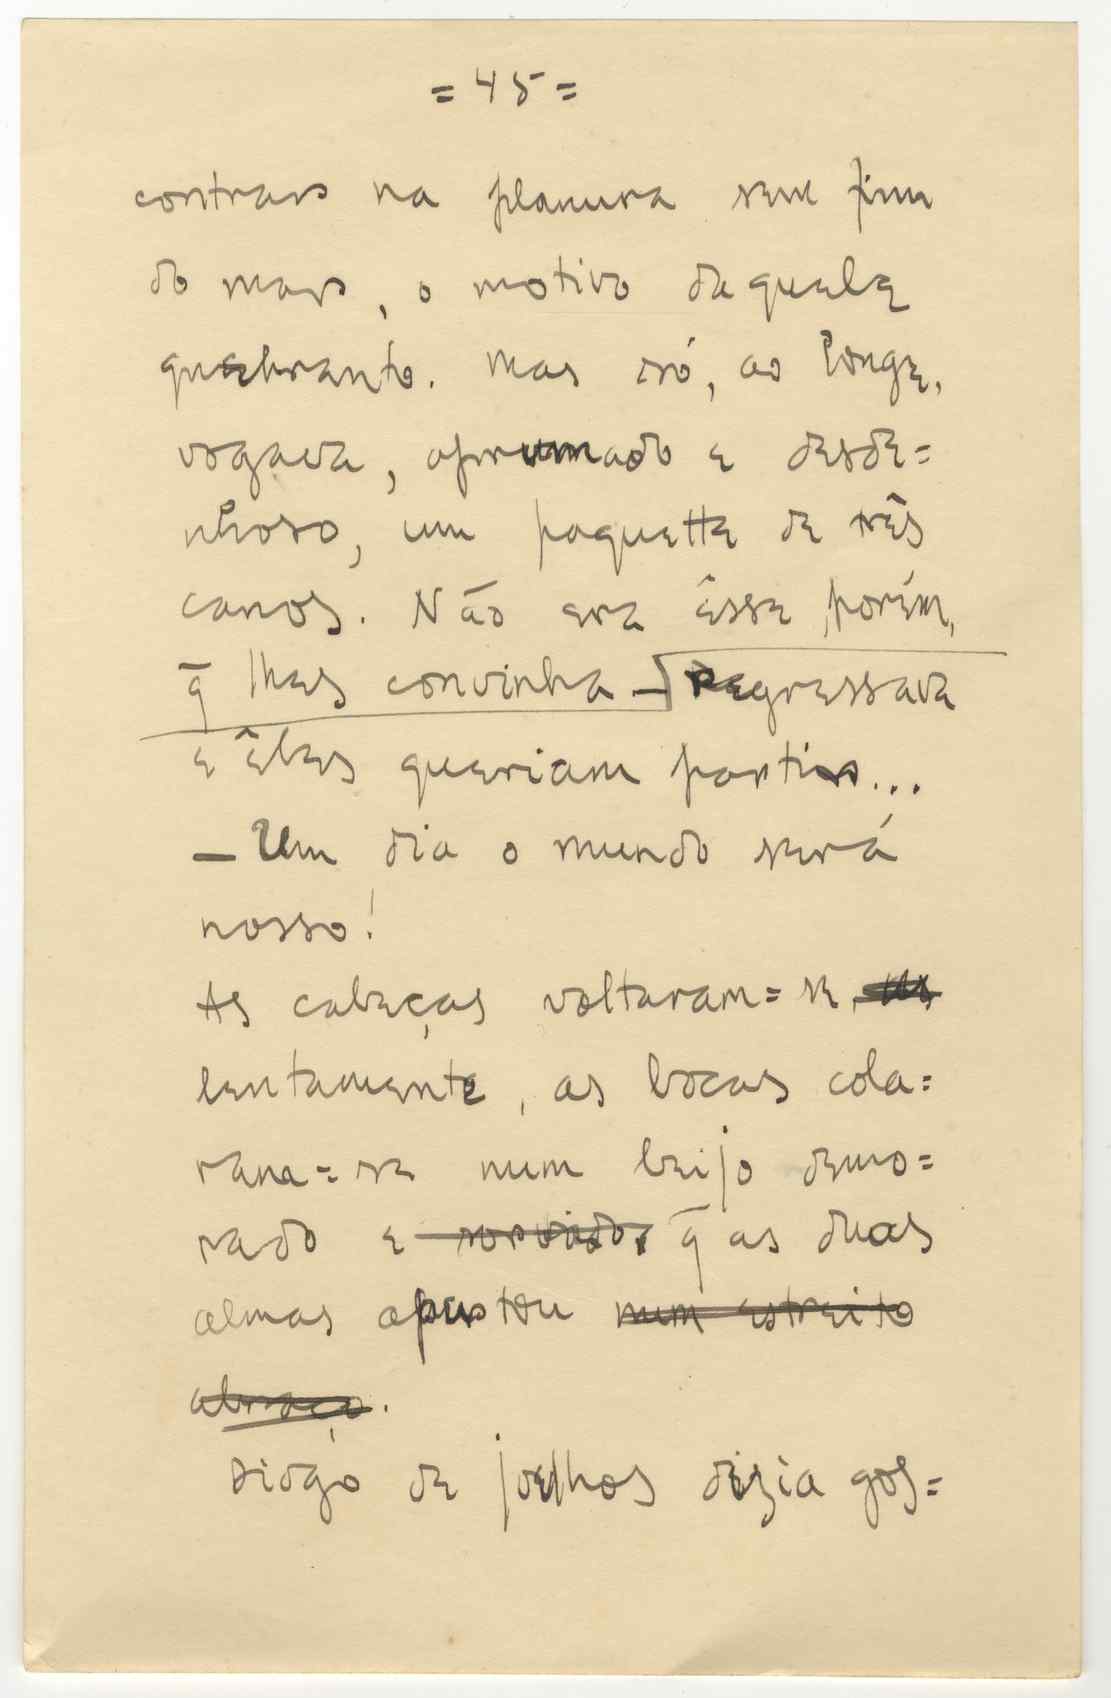 = 45 =
contrar na planura sem fim
do mar, o motivo daquele
quebranto. Mas só, ao longe,
vogava, aprumado e desde=
nhoso, um paquette de três
canos. Não era êsse, porém,
q̄ lhes convinha – Regressava
e êles queriam partir...
– Um dia o mundo será
nosso!
As cabeças voltaram=se,
lentamente, as bocas cola=
ram=se num beijo demo=
rado e sorvido, q̄ as duas
almas apertou num estreito
abraço.
Diogo de joelhos dizia gos=